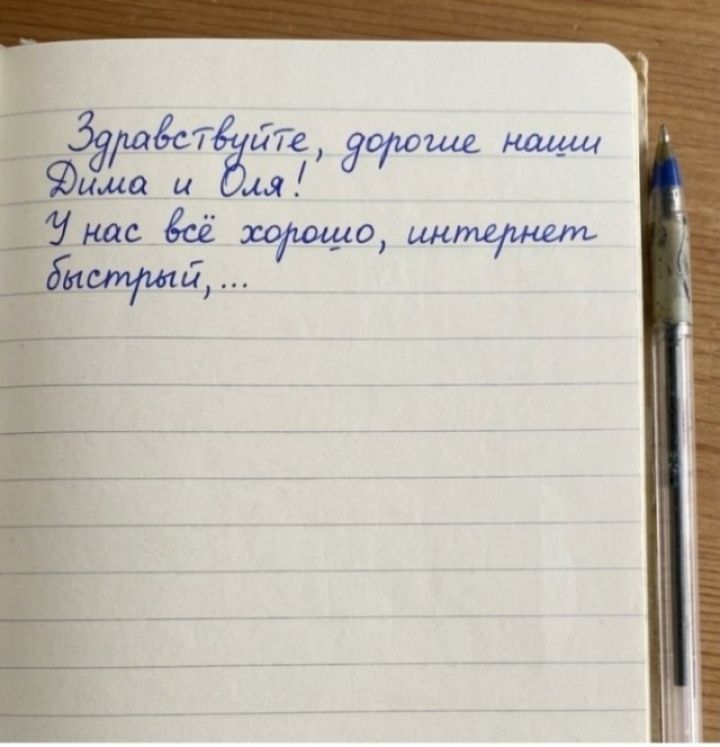 Здравствуйте, дорогие наши
Дима и Оля!
У нас всё хорошо, интернет
быстрый,...